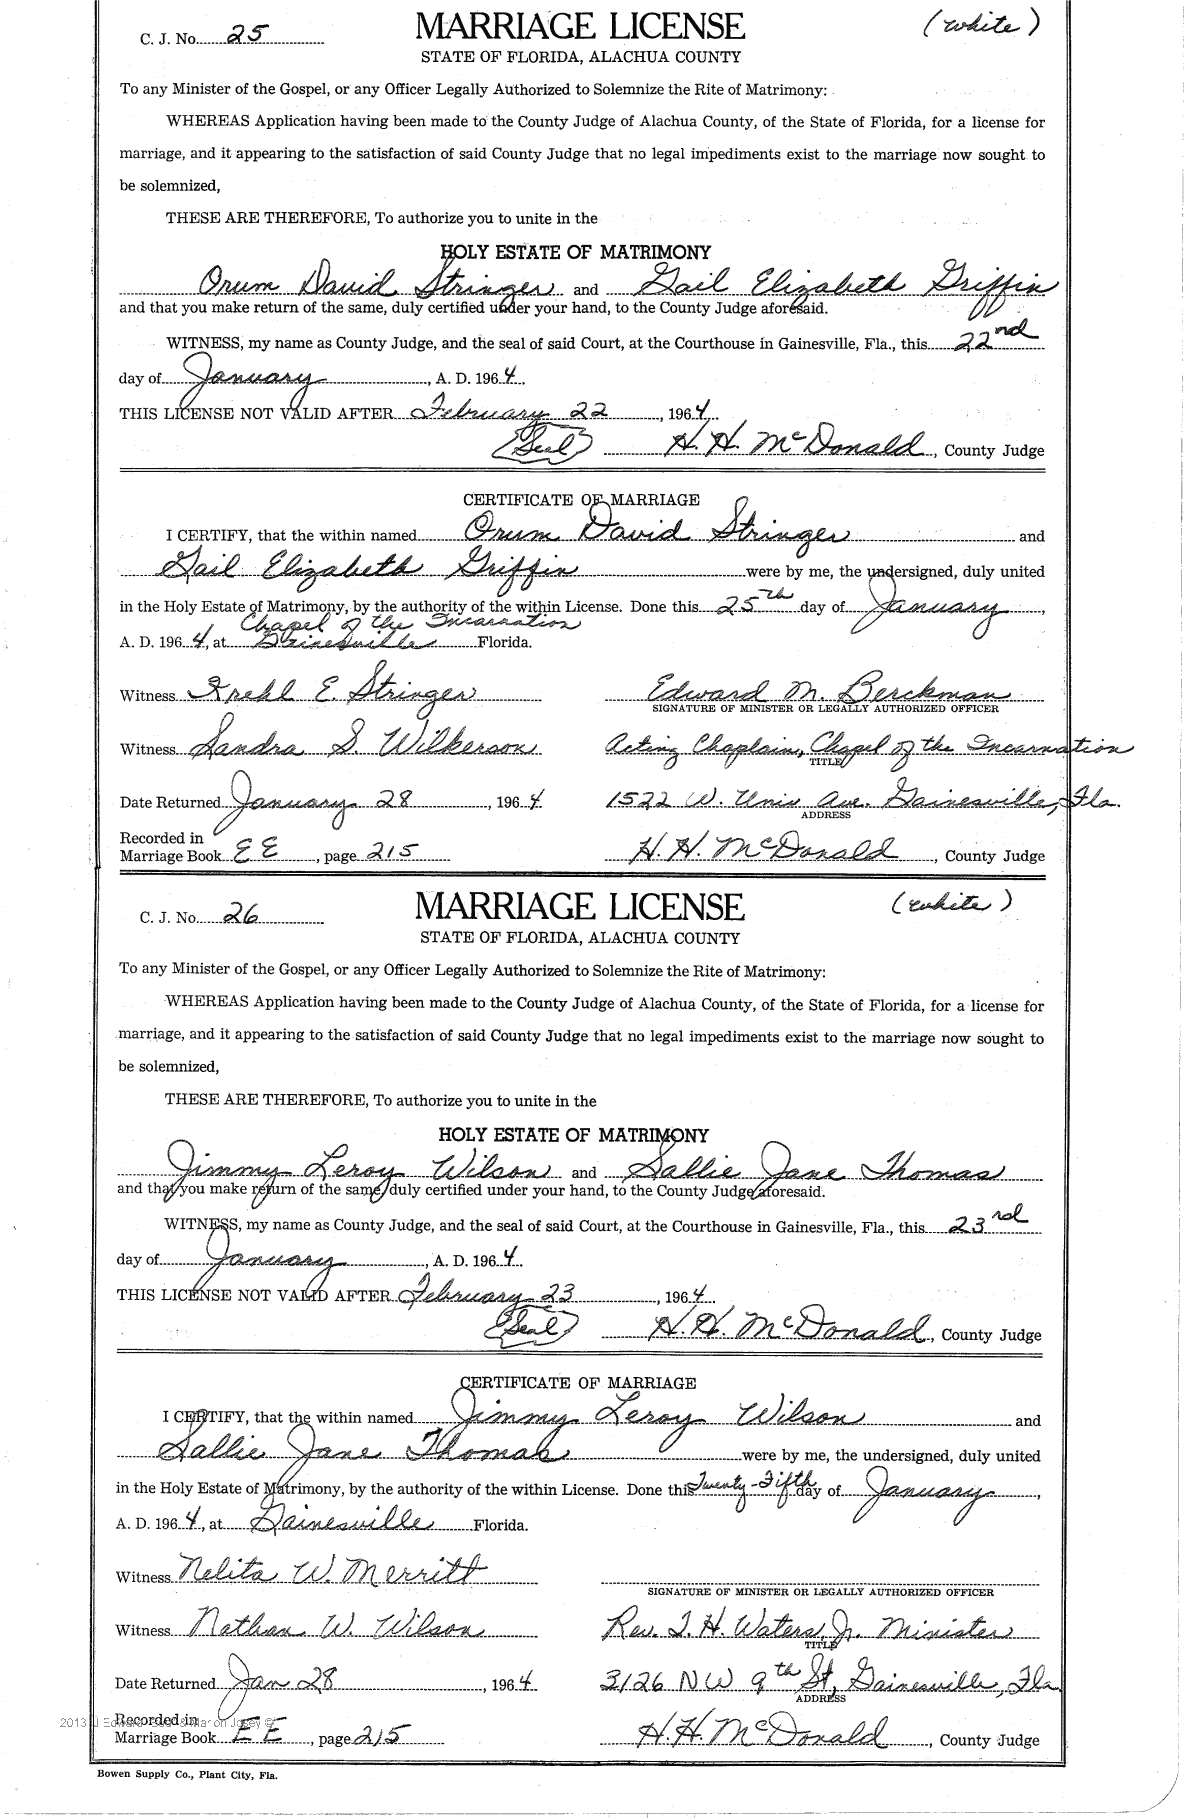 C. J. No. 25 MARRIAGE LICENSE (white)
STATE OF FLORIDA, ALACHUA COUNTY
To any Minister of the Gospel, or any Officer Legally Authorized to Solemnize the Rite of Matrimony:
WHEREAS Application having been made to the County Judge of Alachua County, of the State of Florida, for a license for
marriage, and it appearing to the satisfaction of said County Judge that no legal impediments exist to the marriage now sought to
be solemnized,
THESE ARE THEREFORE, To authorize you to unite in the
HOLY ESTATE OF MATRIMONY
Orum David Stringer and Gail Elizabeth Griffin
and that you make return of the same, duly certified under your hand, to the County Judge aforesaid.
WITNESS, my name as County Judge, and the seal of said Court, at the Courthouse in Gainesville, Fla., this 22nd
day of January, A. D. 1964.
THIS LICENSE NOT VALID AFTER February 22, 1964
(Seal) H. H. McDonald, County Judge
CERTIFICATE OF MARRIAGE
I CERTIFY, that the within named Orum David Stringer and
Gail Elizabeth Griffin were by me, the undersigned, duly united
in the Holy Estate of Matrimony, by the authority of the within License. Done this 25th day of January,
Chapel of the Incarnation
A. D. 1964, at Gainesville Florida.
Witness Krehl E. Stringer Edward M. Berckman
SIGNATURE OF MINISTER OR LEGALLY AUTHORIZED OFFICER
Witness Sandra S. Wilkerson Acting Chaplain, Chapel of the Incarnation
TITLE
Date Returned January 28, 1964 1522 W. Univ. Ave. Gainesville, Fla.
ADDRESS
Recorded in
Marriage Book EE, page 215 H. H. McDonald, County Judge
C. J. No. 26 MARRIAGE LICENSE (white)
STATE OF FLORIDA, ALACHUA COUNTY
To any Minister of the Gospel, or any Officer Legally Authorized to Solemnize the Rite of Matrimony:
WHEREAS Application having been made to the County Judge of Alachua County, of the State of Florida, for a license for
marriage, and it appearing to the satisfaction of said County Judge that no legal impediments exist to the marriage now sought to
be solemnized,
THESE ARE THEREFORE, To authorize you to unite in the
HOLY ESTATE OF MATRIMONY
Jimmy Leroy Wilson and Sallie Jane Thomas
and that you make return of the same, duly certified under your hand, to the County Judge aforesaid.
WITNESS, my name as County Judge, and the seal of said Court, at the Courthouse in Gainesville, Fla., this 23rd
day of January, A. D. 1964.
THIS LICENSE NOT VALID AFTER February 23, 1964
(Seal) H. H. McDonald, County Judge
CERTIFICATE OF MARRIAGE
I CERTIFY, that the within named Jimmy Leroy Wilson and
Sallie Jane Thomas were by me, the undersigned, duly united
in the Holy Estate of Matrimony, by the authority of the within License. Done this Twenty-Fifth day of January,
A. D. 1964, at Gainesville Florida.
Witness Nelita W. Merritt
SIGNATURE OF MINISTER OR LEGALLY AUTHORIZED OFFICER
Witness Nathan W. Wilson Rev. T. H. Waters, Jr. Minister
TITLE
Date Returned Jan 28, 1964 3126 NW 9th St, Gainesville, Fla.
ADDRESS
Recorded in
Marriage Book EE, page 215 H. H. McDonald, County Judge
Bowen Supply Co., Plant City, Fla.